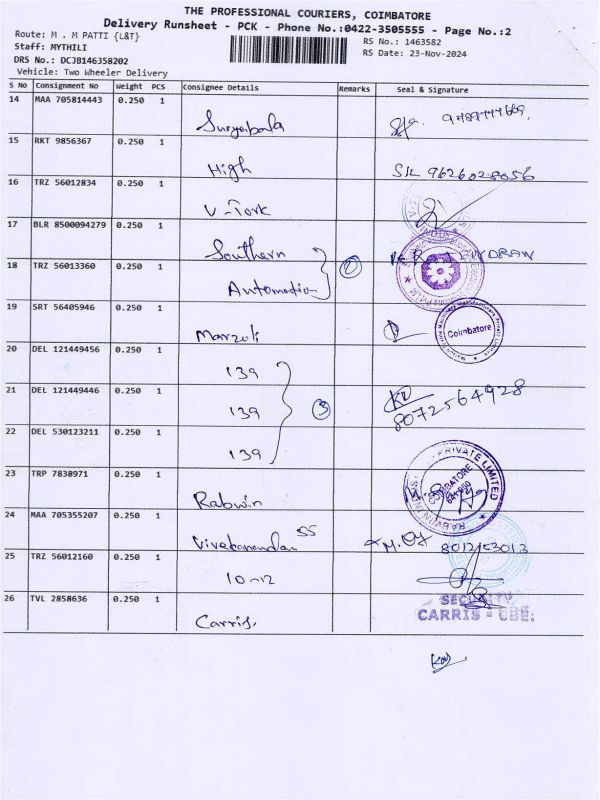 THE PROFESSIONAL COURIERS, COIMBATORE
Delivery Runsheet - PCK - Phone No.:0422-3505555 - Page No.:2
Route: M . M PATTI {L&T}
RS No.: 1463582
Staff: MYTHILI
RS Date: 23-Nov-2024
DRS No.: DCJB146358202
Vehicle: Two Wheeler Delivery
S No Consignment No Weight PCS Consignee Details Remarks Seal & Signature
14 MAA 705814443 0.250 1
Suryabala
15 RKT 9856367 0.250 1
High S/L 9626028056
16 TRZ 56012834 0.250 1
V-Tork
17 BLR 8500094279 0.250 1
Southern
18 TRZ 56013360 0.250 1
Automation 2
19 SRT 56405946 0.250 1
Marzoli Coimbatore
20 DEL 121449456 0.250 1
139
21 DEL 121449446 0.250 1
139 3 8072564928
22 DEL 530123211 0.250 1
139 PRIVATE LIMITED
23 TRP 7838971 0.250 1
COIMBATORE
Rabwin
24 MAA 705355207 0.250 1
Vivekanandan 55
25 TRZ 56012160 0.250 1
10-12
26 TVL 2858636 0.250 1
SECURITY
CARRIS - CBE.
Carris.